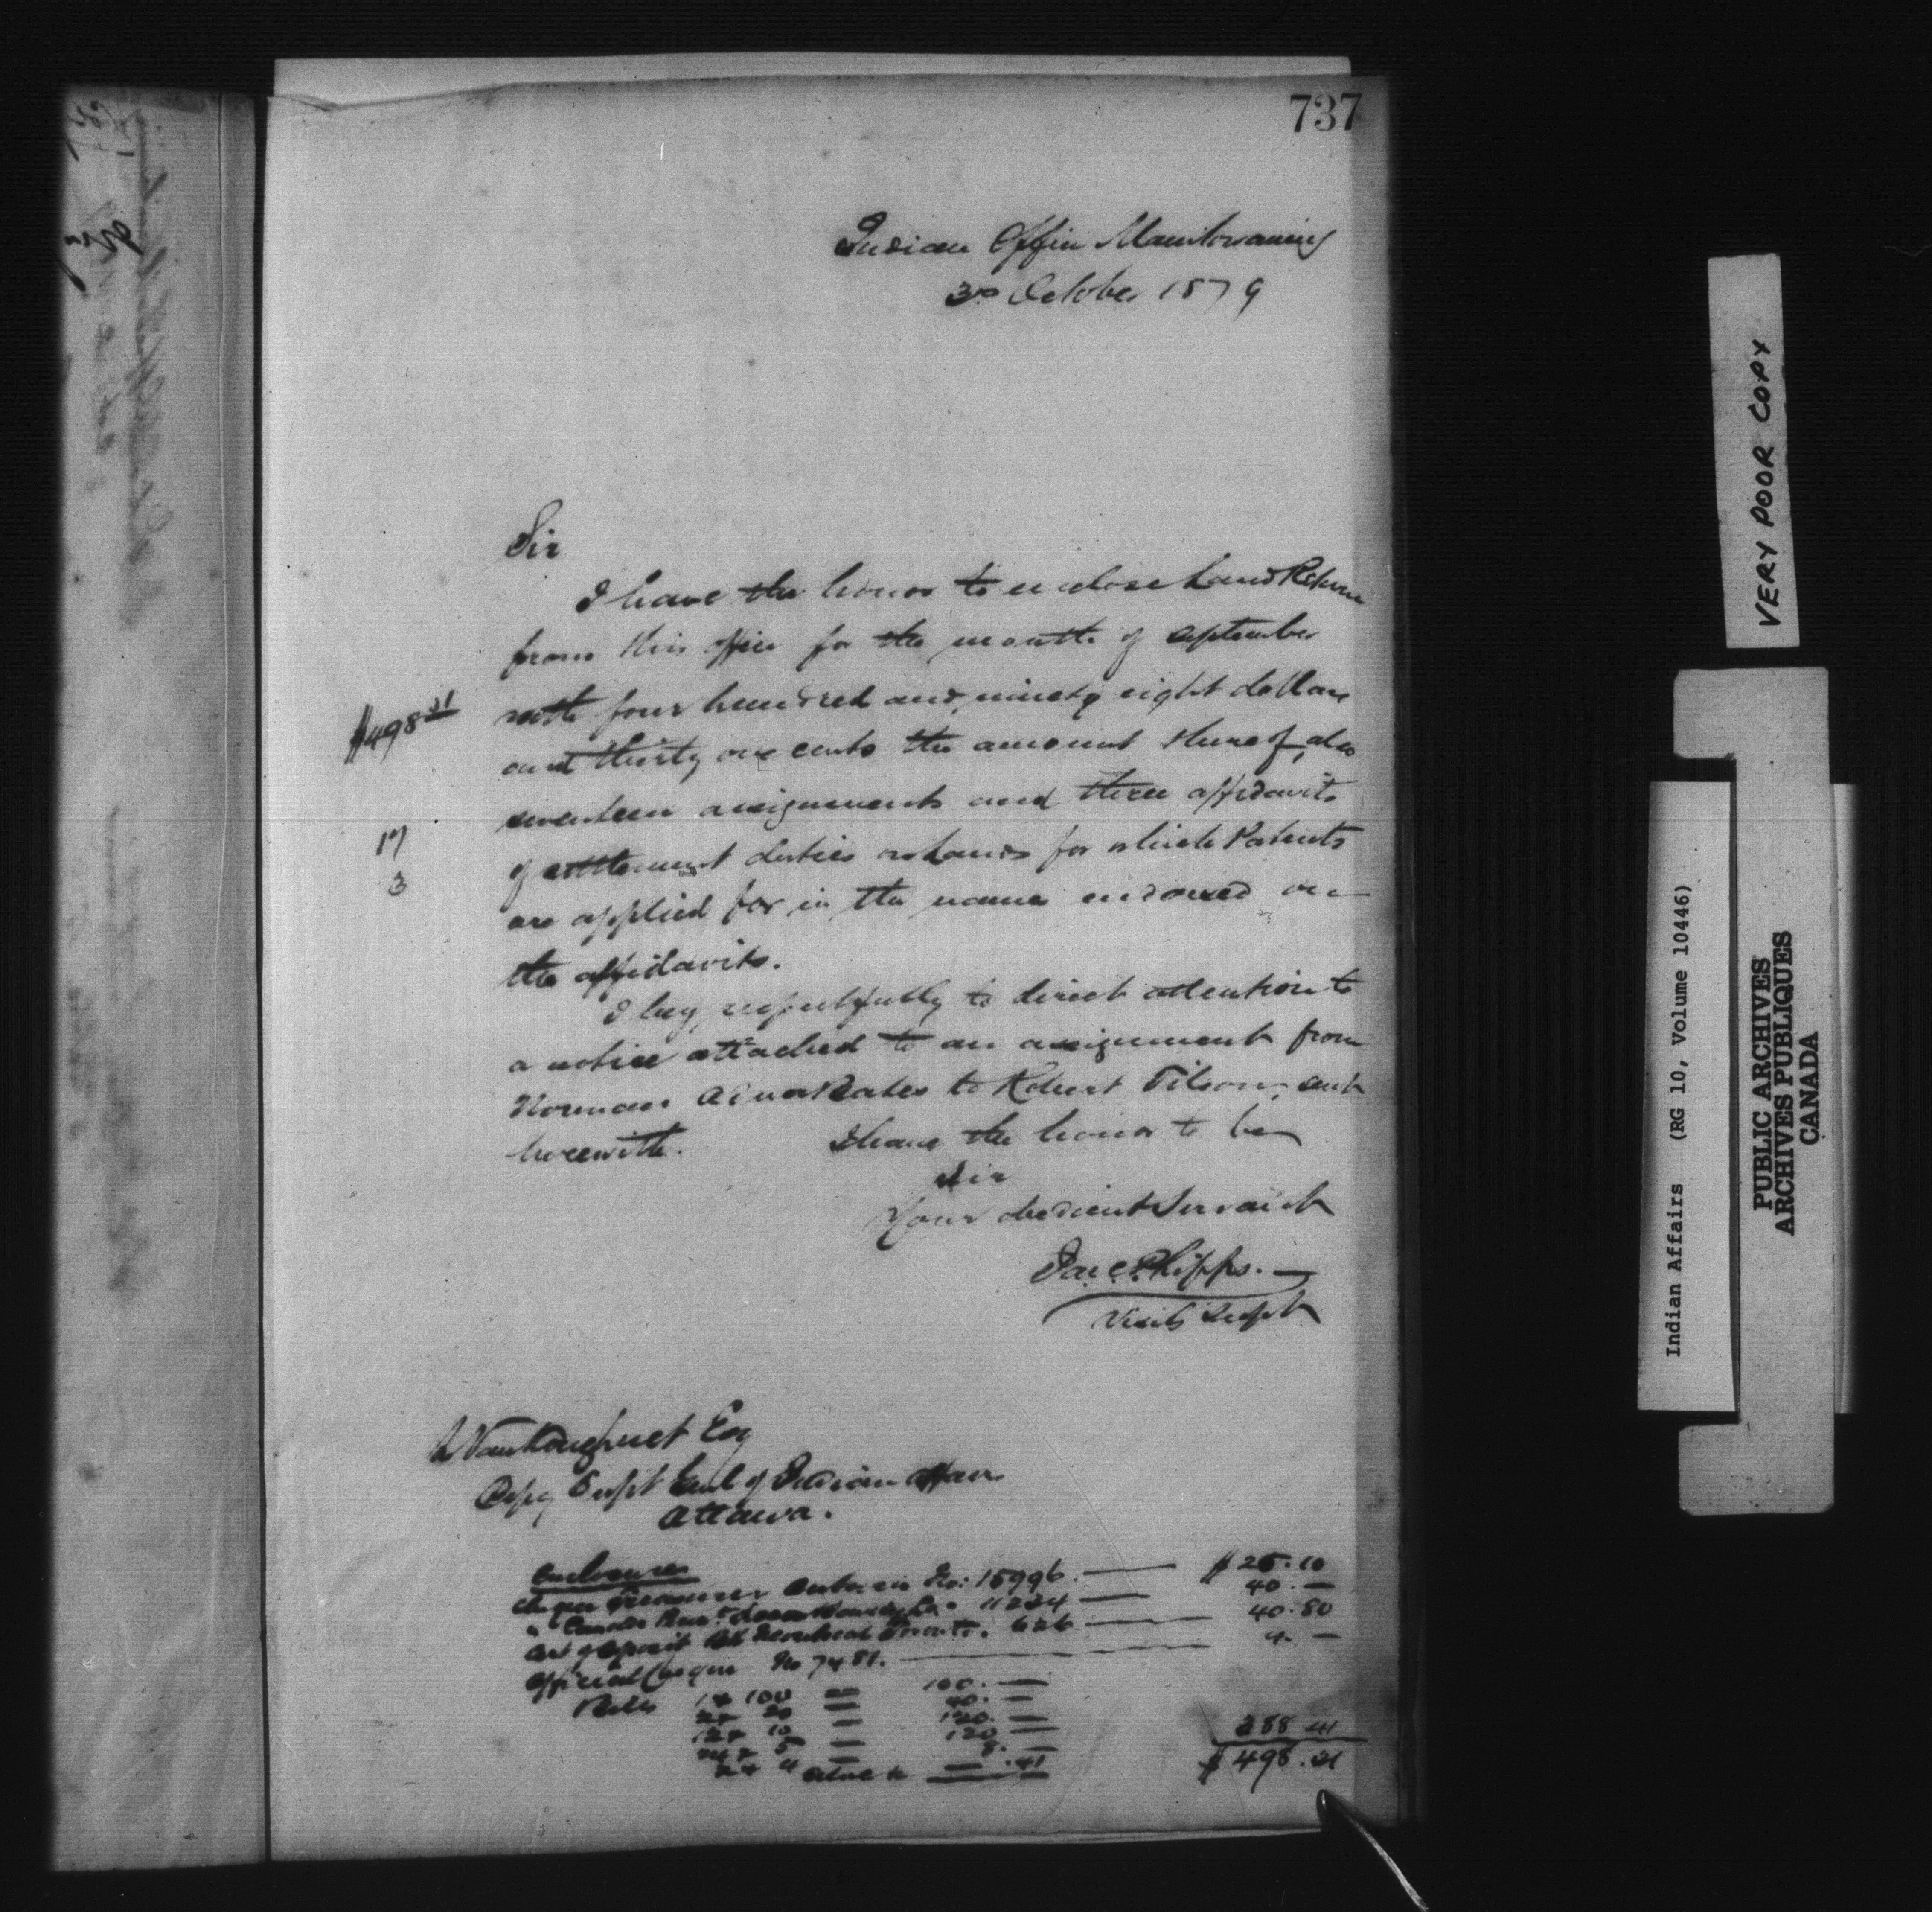 737
Indian Office Manitowaning
3rd October 1879
Sir
I have the honor to enclose Land Return
from this office for the month of September
$498.31 with four hundred and ninety eight dollars
and thirty one cents the amount thereof, also
17 seventeen assignments and three affidavits
3 of settlement duties on lands for which Patents
are applied for in the names endorsed on
the affidavits.
I beg respectfully to direct attention to
a notice attached to an assignment from
Norman to Robert Tilson, sent
herewith. I have the honor to be
Sir
Your obedient Servant
Jas. C. Phipps.
Visitg Supt
L VanKoughnet Esq
Depy Supt Genl of Indian Affairs
Ottawa.
Enclosures
Cheque Treasurer Ontario No: 15996. $ 25.10
" Canada 11234 40. —
of Deposit Bk Montreal Toronto. 626 40.80
Official Cheque No 7481. 4. —
Bills 1 x 100 = 100. —
2 x 20 = 40. —
12 x 10 — 120. —
24 x 5 — 120 —
2 x 4 — 8. —
Silver — .41 388 41
$ 498.31
VERY POOR COPY
Indian Affairs (RG 10, Volume 10446)
PUBLIC ARCHIVES
ARCHIVES PUBLIQUES
CANADA